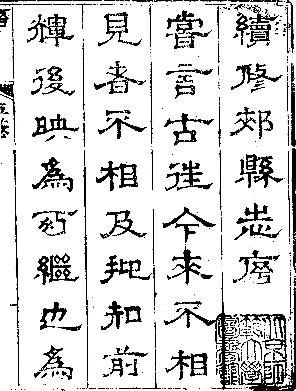 續修郟縣志序
嘗言古徃今來不相
見者不相及抑知前
輝後映為可繼也為